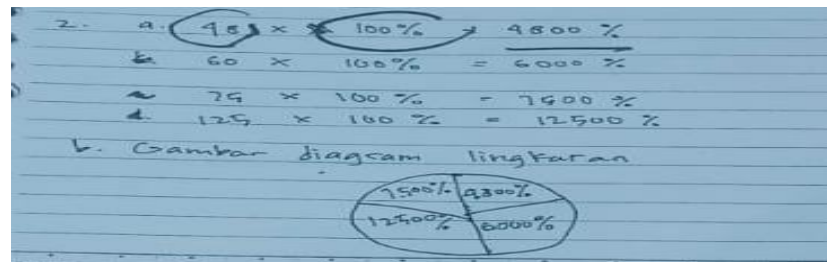 2. a. 48 × 100% = 4800 %
60 × 100% = 6000 %
75 × 100 % = 7500 %
d. 125 × 100 % = 12500 %
b. Gambar diagram lingkaran
7500% 4800%
12500% 6000%